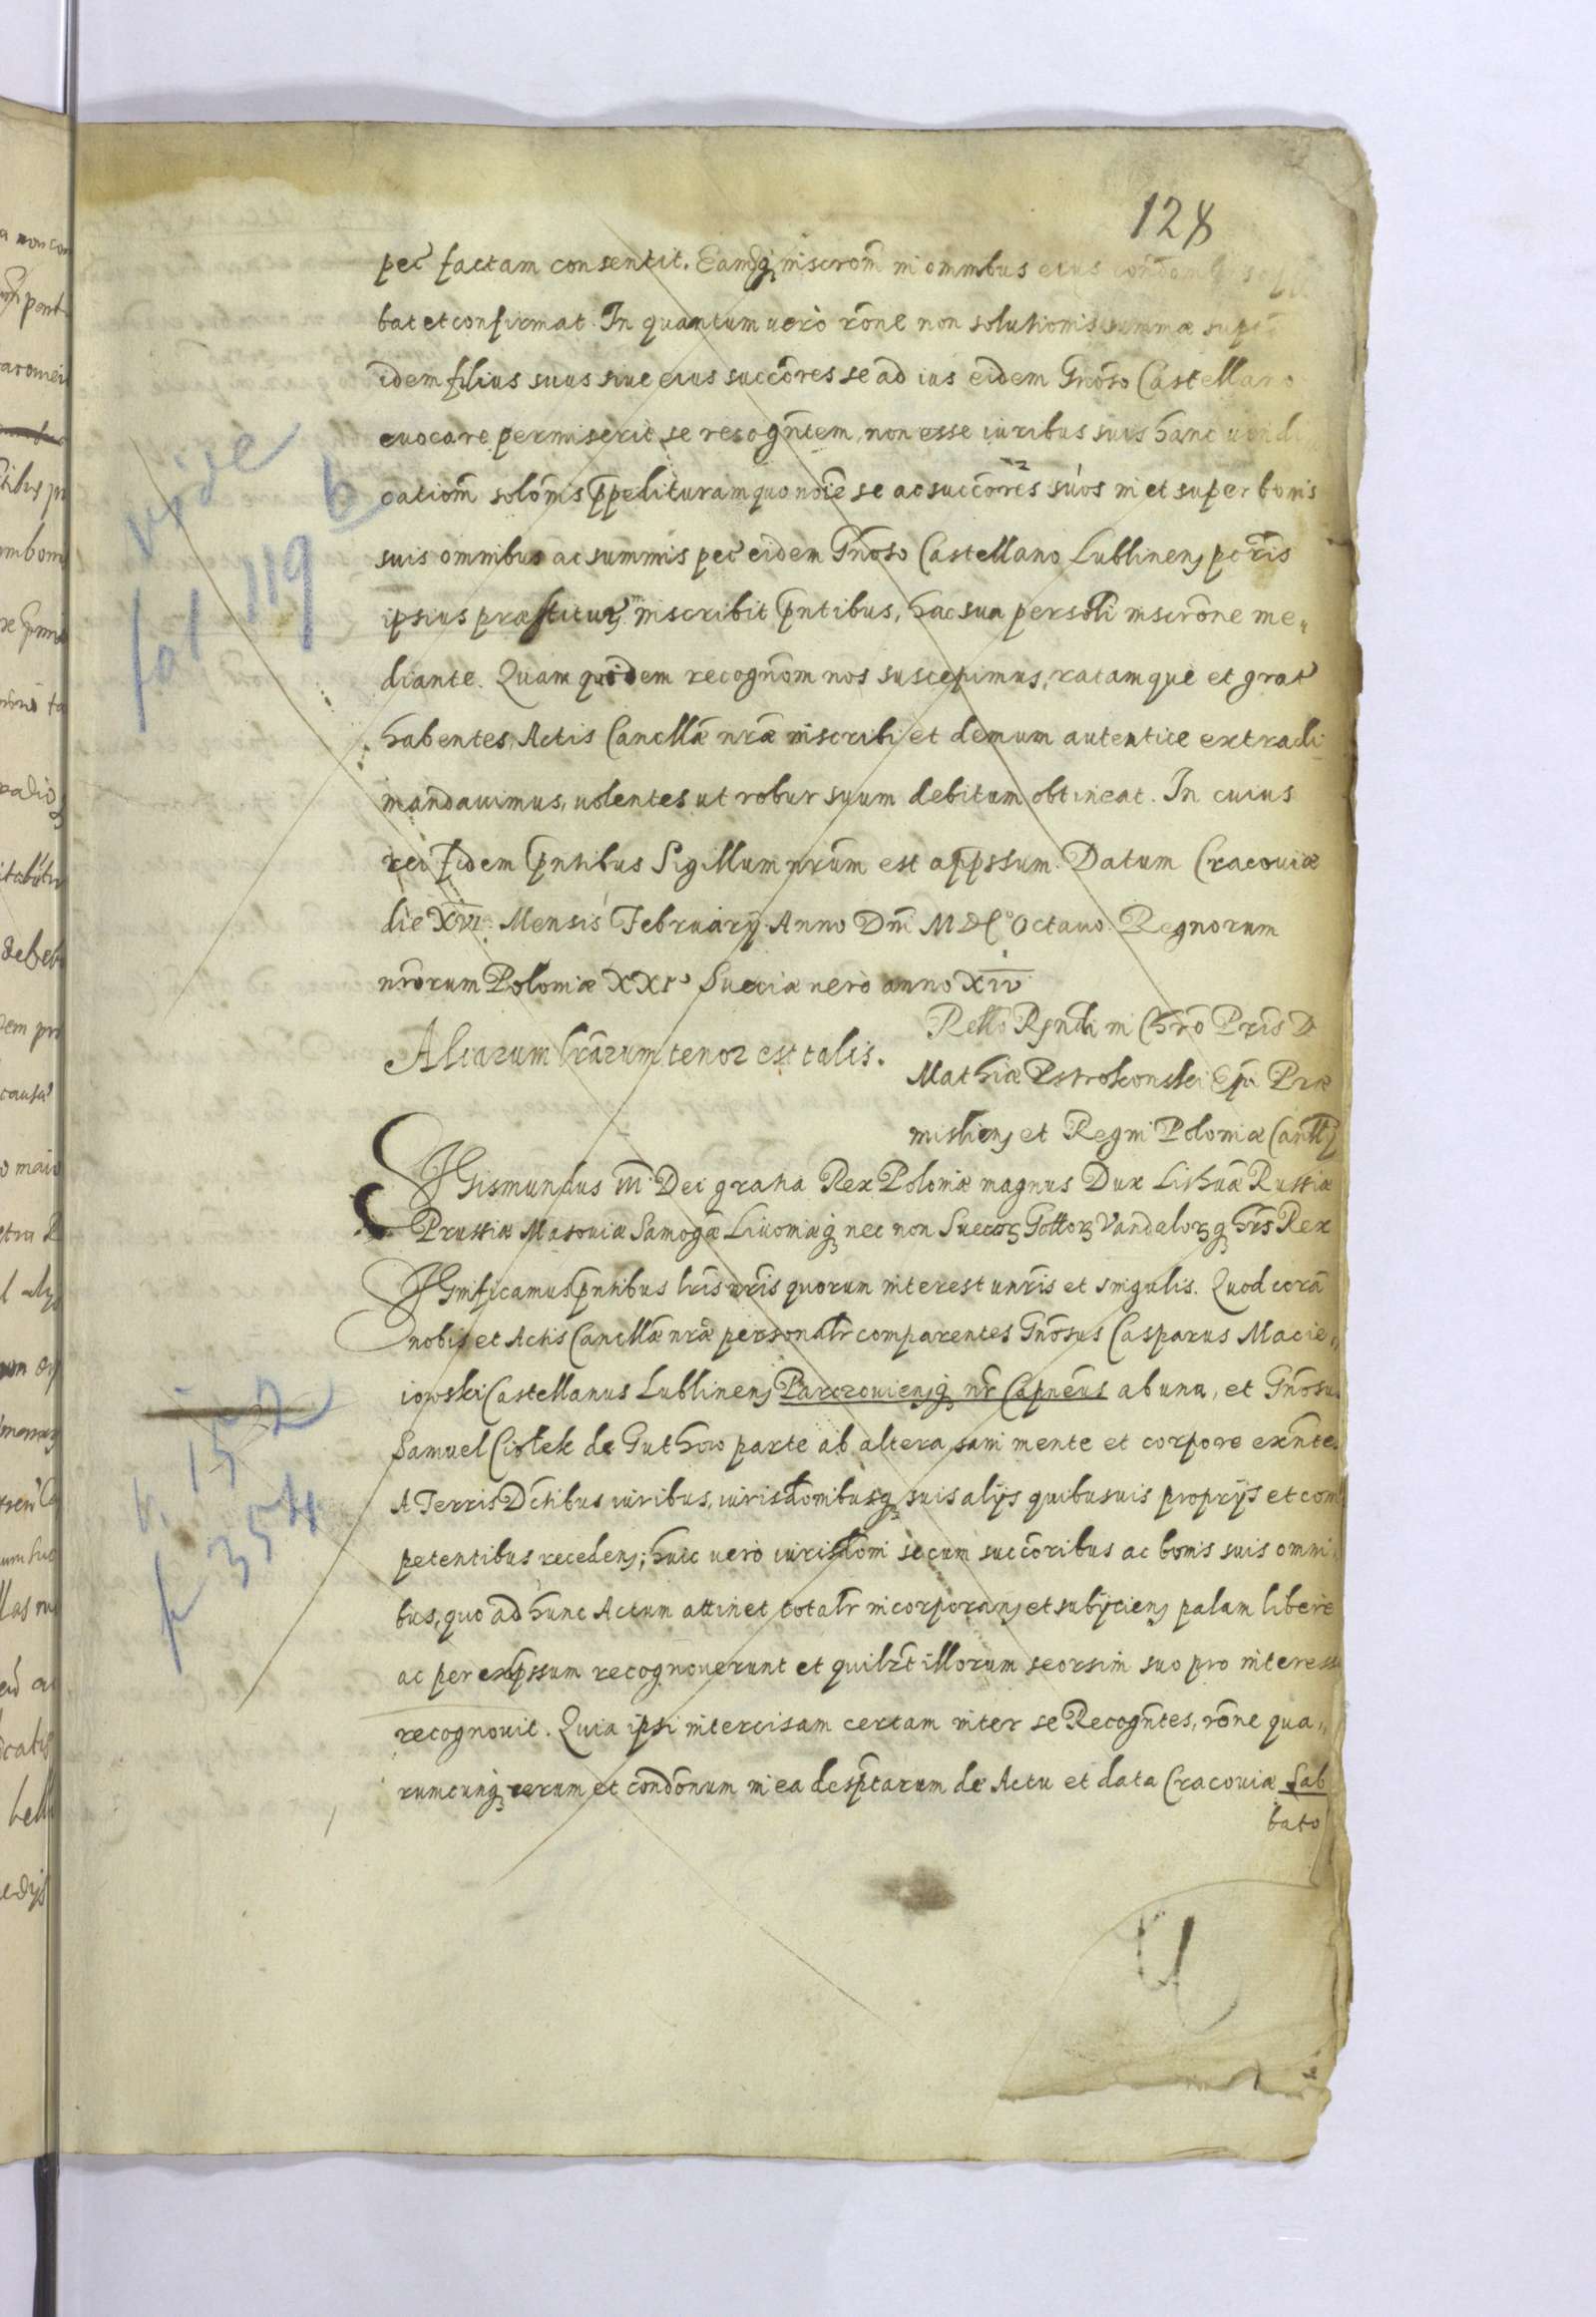 128
pec̃ factam consentit. Eamq̃ inscrõm in omnibus eius
bat et confirmat. In quantum uero rõne non solutionis summæ
idem filius suus siue eius succõres se ad ius eidem Gnõso Castellano
euocare permiserit, se recogñtem, non esse iuribus suis hanc uendi
catiom̃ solõms p̃peditura quo noĩe se ac succõres suos in et super bonis
suis omnibus ac summis pec̃ eidem Gnõso Castellano Lublinenß
ipsius inscribit p̃ntibus, hac sua persoli inscrõne me„
diante. Quam quidem recognõm nos suscepimus, ratamque et grat̃
habentes, Actis Cancllæ nr̃æ inscribi et demum autentice extradi
mandauimus, uolentes ut robur suum debitum obtineat. In cuius
rei fidem p̃ntibus Sigillum nrũm est app̃ssum. Datum Cracouiæ
die XVI. Mensis February Anno Dnĩ M DC° Octauo Regnorum
nrõrum Poloniæ XXI° Sueciæ uerò anno XIV
Aliarum lrãrum tenor est talis.
Rellõ Rṇdi in Chrõ Pris D
Mathiæ Pstrokonski Ep̃i Præ
mislienß et Regni Poloniæ Cancllr̃ij
SIGismundus III Dei gratia Rex Poloniæ magnus Dux Lithuã Russiæ
Prussiæ Masouiæ Samogæ Liuoniæq̃ nec non Suecoꝝ Gottoꝝ Vandaloꝝq̃ hr̃s Rex
SIGnificamus p̃ntibus lrĩs nrĩs quorum interest unrĩs et singulis. Quod corã
nobis et Actis Cancllæ nrã personalr̃ comparentes Gnõsus Casparus Macie„
iowski Castellanus Lublinenß Parczouienßq̃ nr̃ Capnẽus ab una, et Gnõsus
Samuel Ciołek de Guthow parte ab altera, sani mente et corpore exñtes
A Terris Dctibus iuribus, iurisdõnibusq̃ suis alijs quibusuis proprijs et com
petentibus recedenß; huic uero iurisdõni secum succõribus ac bonis suis omni
bus, quo ad hunc Actum attinet totalr̃ incorporanß et subijcienß palam libere
ac per exp̃ssum recognouerunt et quilr̃t illorum seorsim suo pro interesse
recognouit. Quia ipsi intercisam certam inter se Recogñtes, rõne qua„
rumcunq̃ rerum et condõnum in ea desp̃tarum de Actu et data Cracouiæ Sab
bato
vide
fol 119 b
v. 152
f 354